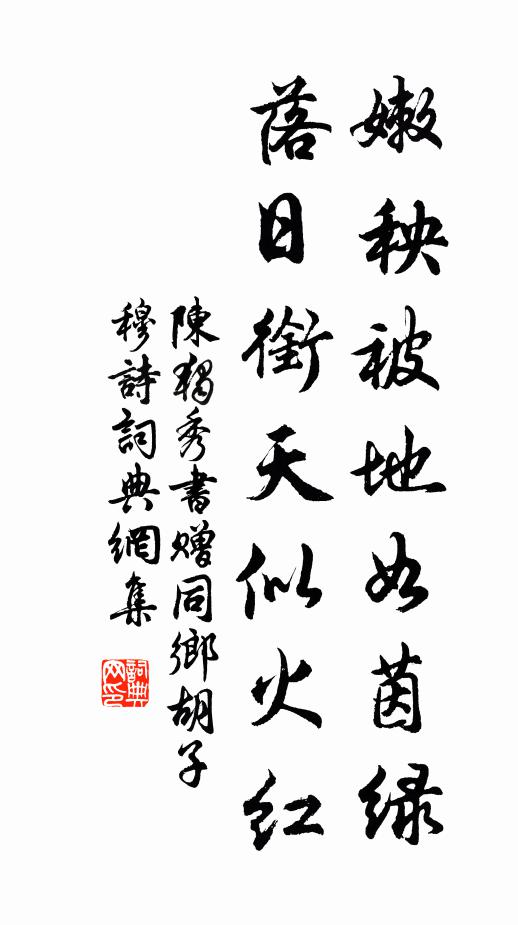 嫩秧被地如茵緑
落日銜天似火紅
陳獨秀書贈同鄉胡子
穆詩詞典網集
詞典
网印